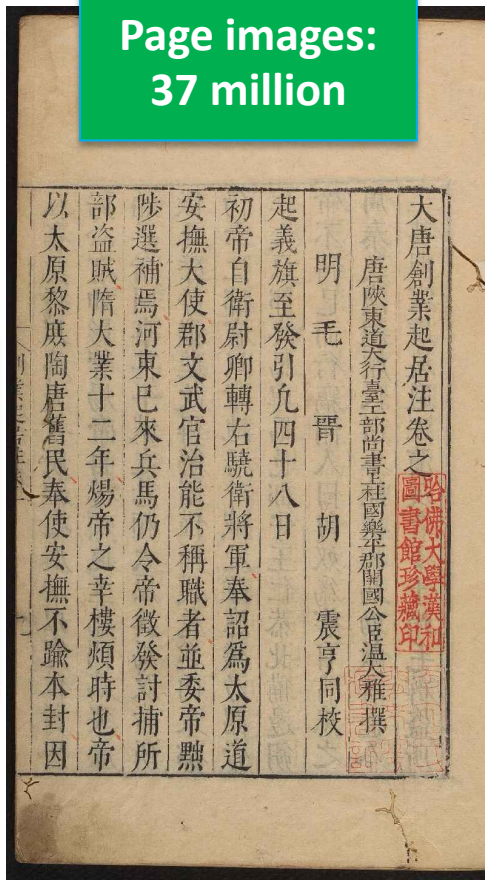 Page images:
37 million
大唐創業起居注卷之一
唐陝東道大行臺工部尚書上柱國樂平郡開國公臣溫大雅撰
明毛晉胡震亨同校
起義旗至發引凡四十八日
初帝自衛尉卿轉右驍衛將軍奉詔爲太原道
安撫大使郡文武官治能不稱職者並委帝黜
陟選補焉河東已來兵馬仍令帝徵發討捕所
部盜賊隋大業十二年煬帝之幸樓煩時也帝
以太原黎庶陶唐舊民奉使安撫不踰本封因
哈佛大學漢和
圖書館珍藏印